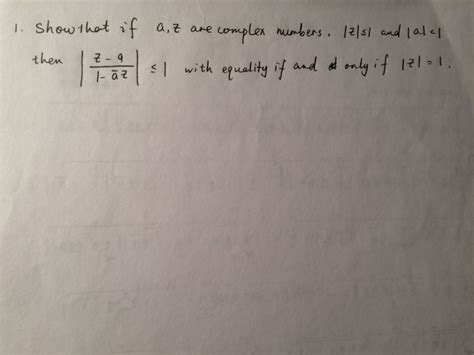 1. Show that if a, z are complex numbers, |z|≤1 and |a|<1
then |z - a / 1 - āz| ≤ 1 with equality if and only if |z| = 1.